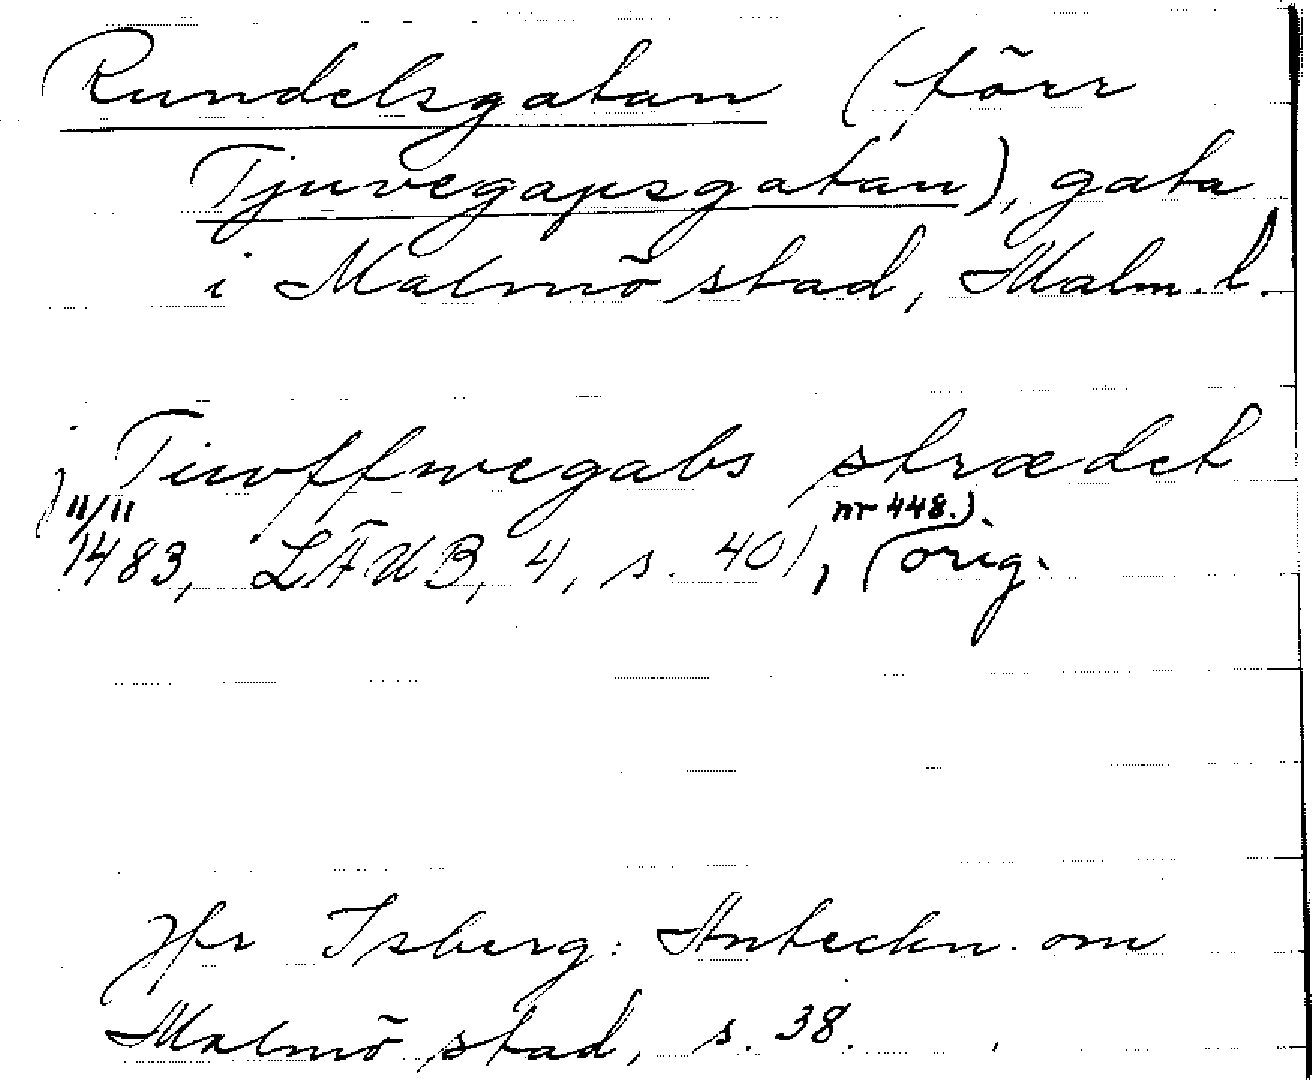 Rundelsgatan (förr
Tjuvegapsgatan), gata
i Malmö stad, Malm. l.
i Tiuffwegabs strædet
11/11 nr 448.).
1483, LÄUB, 4, s. 401, (orig.
Jfr Isberg: Anteckn. om
Malmö stad, s. 38.